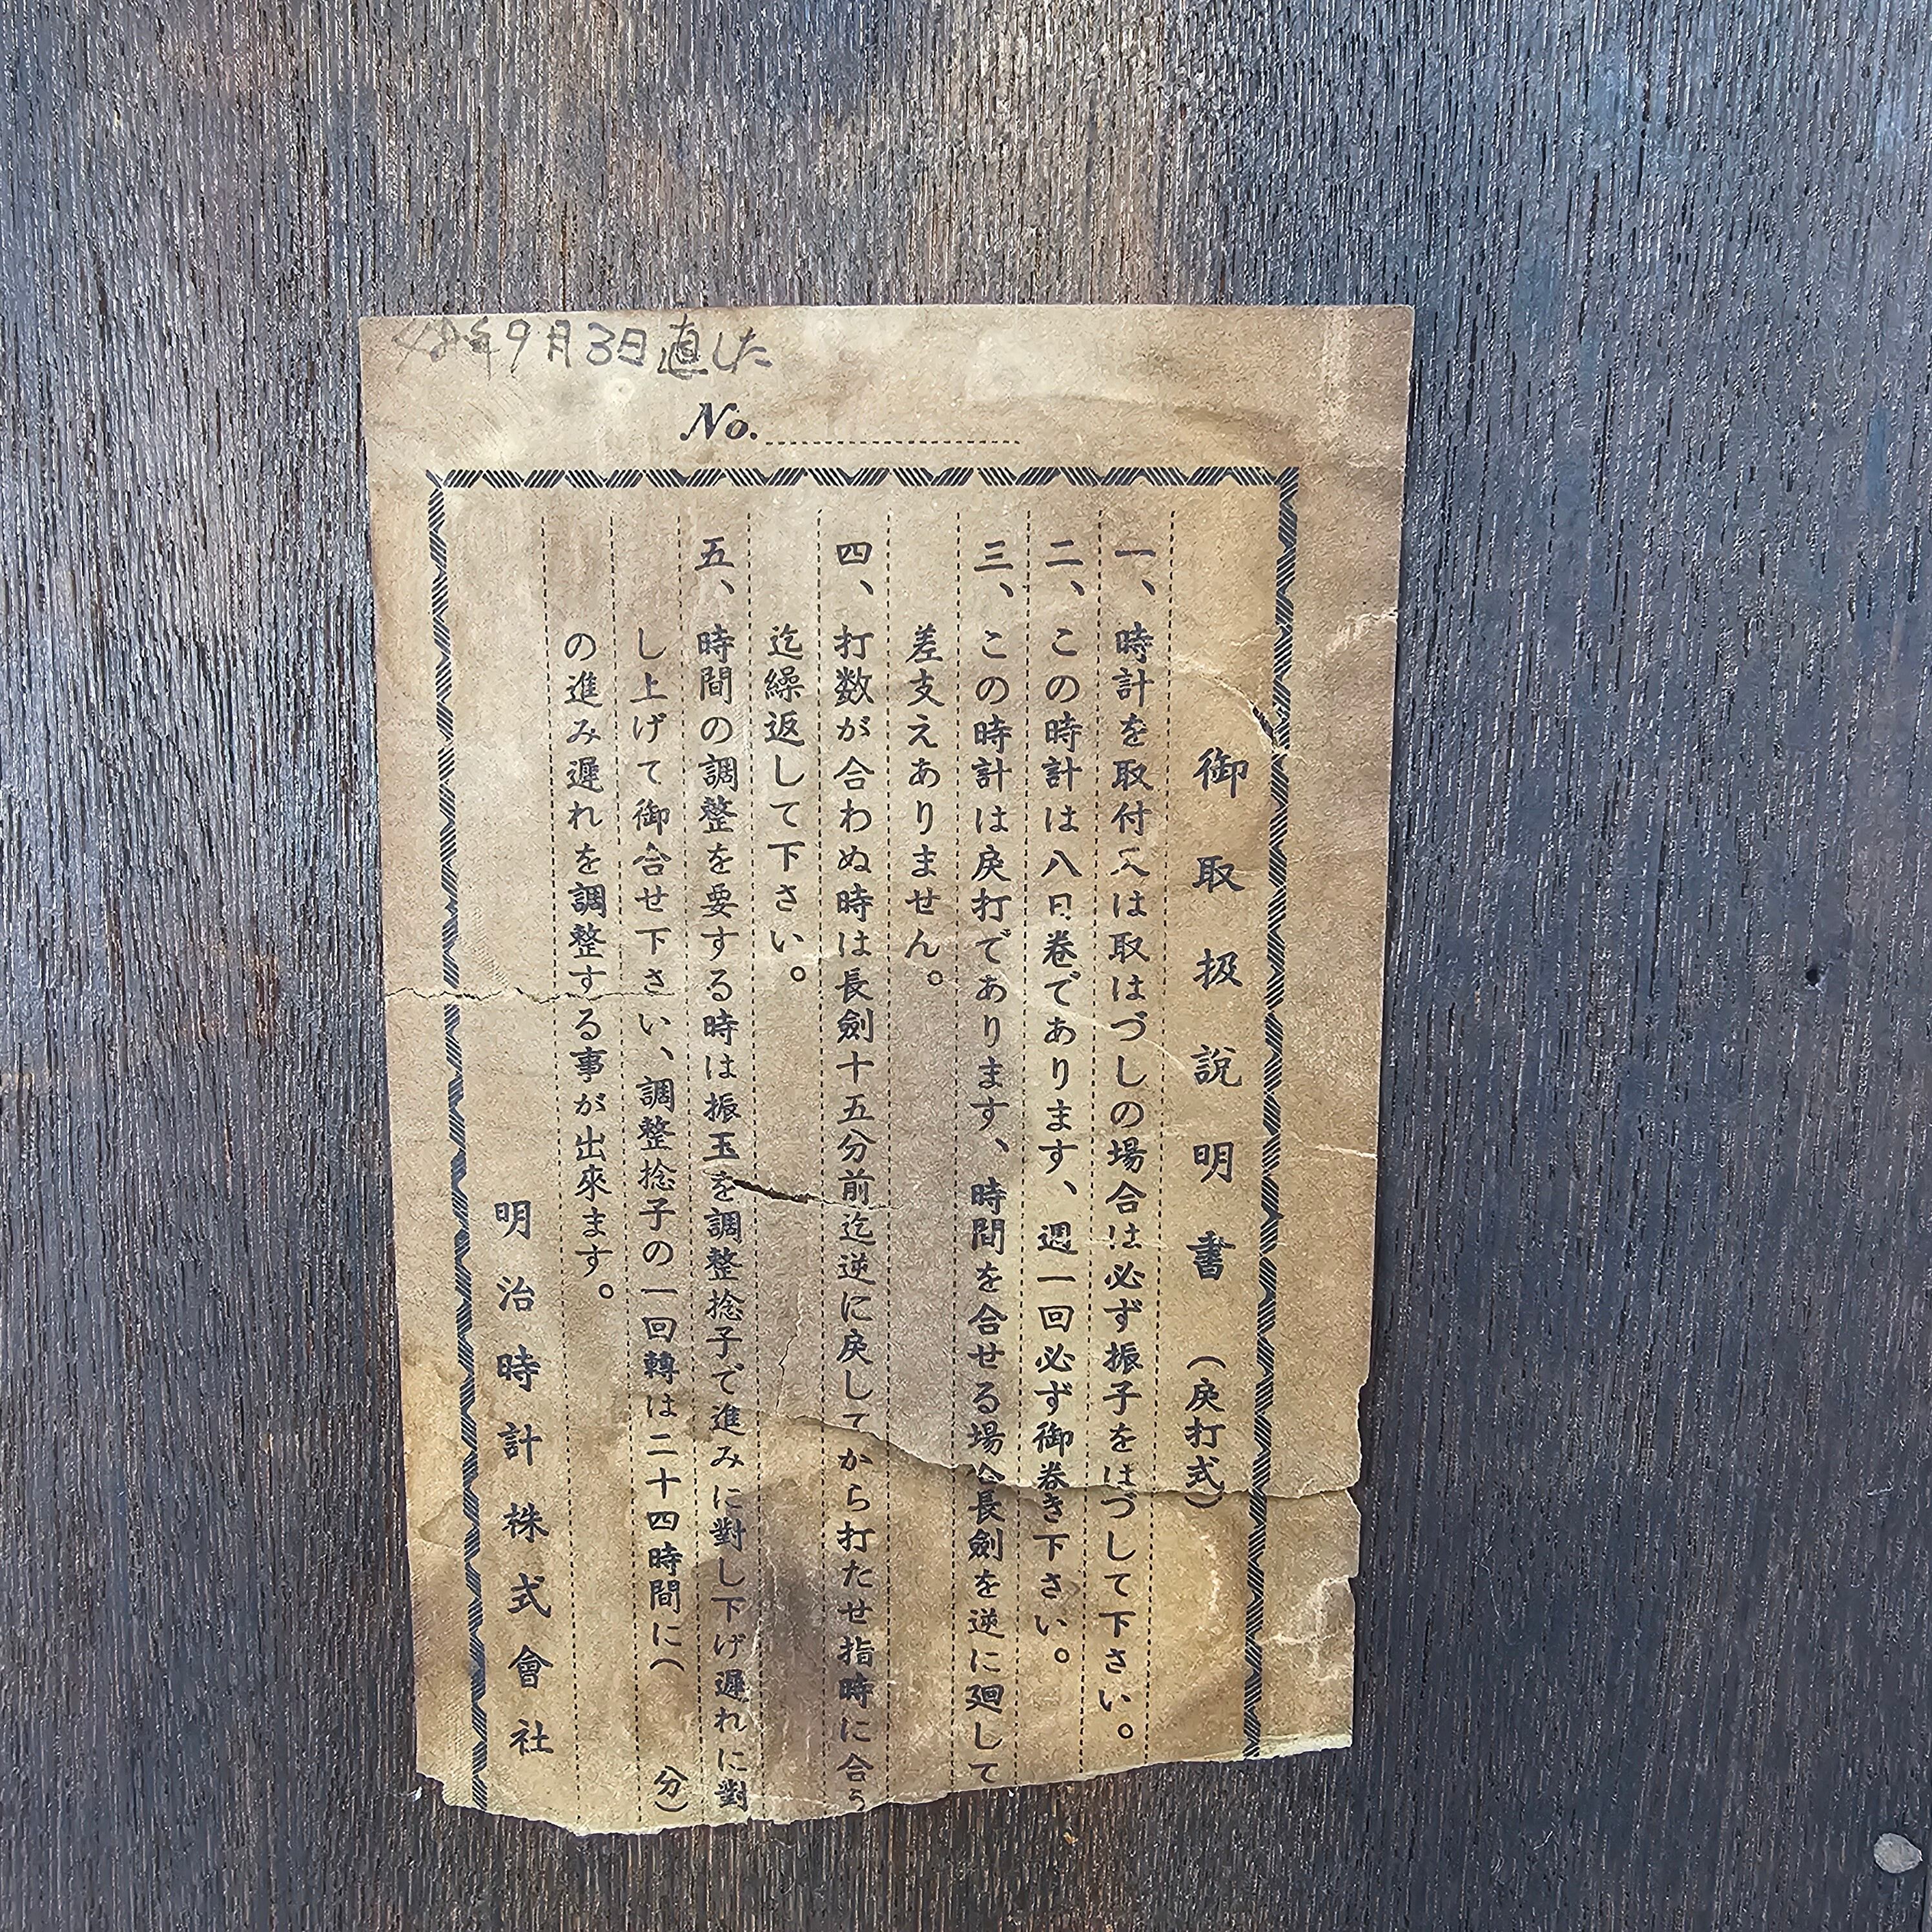 48年9月3日直した
No.
御取扱說明書（戾打式）
一、時計を取付又は取はづしの場合は必ず振子をはづして下さい。
二、この時計は八日卷であります、週一回必ず御卷き下さい。
三、この時計は戾打であります、時間を合せる場合長劍を逆に廻して
差支えありません。
四、打数が合わぬ時は長劍十五分前迄逆に戾してから打たせ指時に合う
迄繰返して下さい。
五、時間の調整を要する時は振玉を調整捻子で進みに對し下げ遲れに對
し上げて御合せ下さい、調整捻子の一回轉は二十四時間に（　　分）
の進み遲れを調整する事が出來ます。
明治時計株式會社